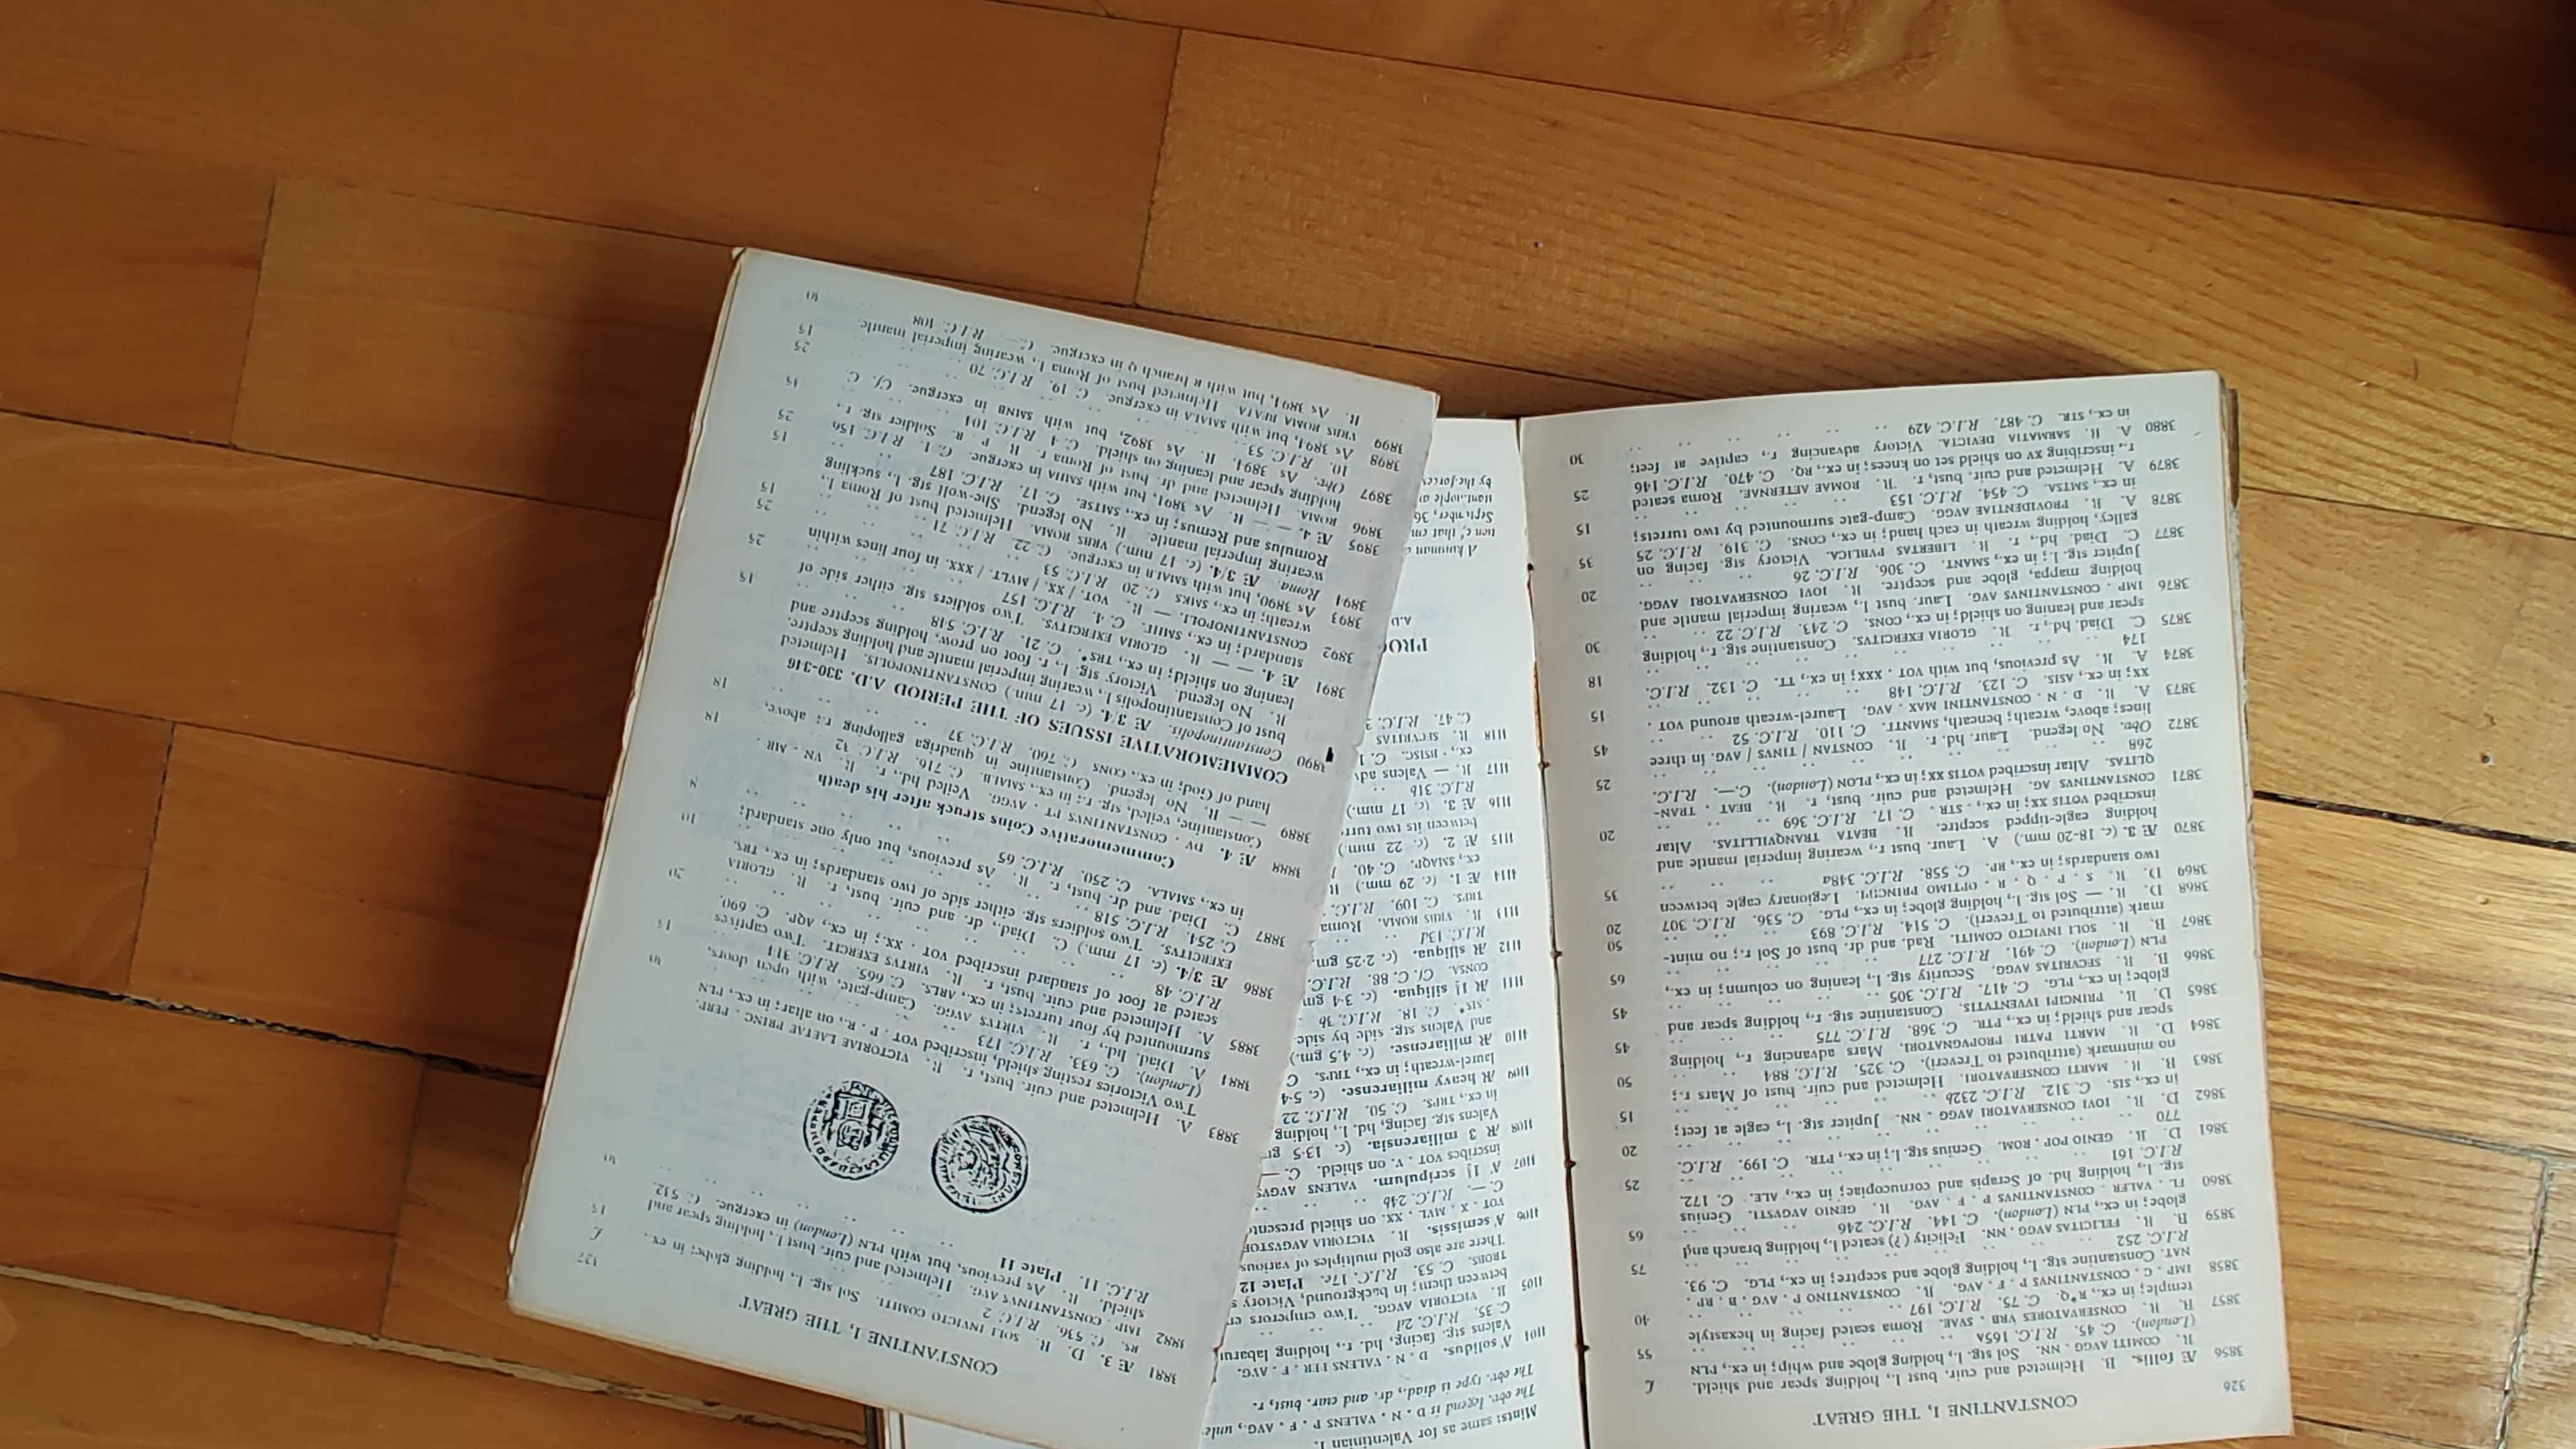 326 CONSTANTINE I, THE GREAT
£
3856 Æ follis. B. Helmeted and cuir. bust l., holding spear and shield.
R. COMITI AVGG . NN. Sol stg. l., holding globe and whip; in ex., PLN
(London). C. 45. R.I.C. 165A .. 55
3857 B. R. CONSERVATORES VRB . SVAE. Roma seated facing in hexastyle
temple; in ex., R*Q. C. 75. R.I.C. 197 .. 40
3858 IMP . C . CONSTANTINVS P . F . AVG. R. CONSTANTINO P . AVG . B . RP .
NAT. Constantine stg. l., holding globe and sceptre; in ex., PLG. C. 93.
R.I.C. 252 .. 75
3859 B. R. FELICITAS AVGG . NN. Felicity (?) seated l., holding branch and
globe; in ex., PLN (London). C. 144. R.I.C. 246 .. 65
3860 FL . VALER . CONSTANTINVS P . F . AVG. R. GENIO AVGVSTI. Genius
stg. l., holding hd. of Serapis and cornucopiae; in ex., ALE. C. 172.
R.I.C. 161 .. 25
3861 D. R. GENIO POP . ROM. Genius stg. l.; in ex., PTR. C. 199. R.I.C.
770 .. 20
3862 D. R. IOVI CONSERVATORI AVGG . NN. Jupiter stg. l., eagle at feet;
in ex., SIS. C. 312. R.I.C. 232b .. 15
3863 B. R. MARTI CONSERVATORI. Helmeted and cuir. bust of Mars r.;
no mintmark (attributed to Treveri). C. 325. R.I.C. 884 .. 50
3864 D. R. MARTI PATRI PROPVGNATORI. Mars advancing r., holding
spear and shield; in ex., PTR. C. 368. R.I.C. 775 .. 45
3865 D. R. PRINCIPI IVVENTVTIS. Constantine stg. r., holding spear and
globe; in ex., PLG. C. 417. R.I.C. 305 .. 45
3866 B. R. SECVRITAS AVGG. Security stg. l., leaning on column; in ex.,
PLN (London). C. 491. R.I.C. 277 .. 65
3867 B. R. SOLI INVICTO COMITI. Rad. and dr. bust of Sol r.; no mint-
mark (attributed to Treveri). C. 514. R.I.C. 893 .. 50
3868 D. R. — Sol stg. l., holding globe; in ex., PLG. C. 536. R.I.C. 307 20
3869 D. R. S . P . Q . R . OPTIMO PRINCIPI. Legionary eagle between
two standards; in ex., RP. C. 558. R.I.C. 348a .. 35
3870 Æ 3. (c. 18-20 mm.) A. Laur. bust r., wearing imperial mantle and
holding eagle-tipped sceptre. R. BEATA TRANQVILLITAS. Altar
inscribed VOTIS XX; in ex., · STR · C. 17. R.I.C. 369 .. 20
3871 CONSTANTINVS AG. Helmeted and cuir. bust, r. R. BEAT . TRAN-
QLITAS. Altar inscribed VOTIS XX; in ex., PLON (London). C.—. R.I.C.
268 .. 25
3872 Obv. No legend. Laur. hd. r. R. CONSTAN / TINVS / AVG. in three
lines; above, wreath; beneath, SMANTT. C. 110. R.I.C. 52 .. 45
3873 A. R. D . N . CONSTANTINI MAX . AVG. Laurel-wreath around VOT .
XX; in ex., ASIS. C. 123. R.I.C. 148 .. 15
3874 A. R. As previous, but with VOT . XXX; in ex., TT. C. 132. R.I.C.
174 .. 18
3875 C. Diad. hd., r. R. GLORIA EXERCITVS. Constantine stg. r., holding
spear and leaning on shield; in ex., CONS. C. 243. R.I.C. 22 .. 30
3876 IMP . CONSTANTINVS AVG. Laur. bust l., wearing imperial mantle and
holding mappa, globe and sceptre. R. IOVI CONSERVATORI AVGG.
Jupiter stg. l.; in ex., SMANT. C. 306. R.I.C. 26 .. 20
3877 C. Diad. hd., r. R. LIBERTAS PVBLICA. Victory stg. facing on
galley, holding wreath in each hand; in ex., CONS. C. 319. R.I.C. 25 35
3878 A. R. PROVIDENTIAE AVGG. Camp-gate surmounted by two turrets;
in ex., SMTSA. C. 454. R.I.C. 153 .. 15
3879 A. Helmeted and cuir. bust, r. R. ROMAE AETERNAE. Roma seated
r., inscribing XV on shield set on knees; in ex., RQ. C. 470. R.I.C. 146 25
3880 A. R. SARMATIA DEVICTA. Victory advancing r., captive at feet;
in ex., STR. C. 487. R.I.C. 429 .. 30
CONSTANTINE I, THE GREAT 327
£
3881 Æ 3. D. R. SOLI INVICTO COMITI. Sol stg. l., holding globe; in ex.
RS. C. 536. R.I.C. 2 .. 15
3882 IMP . CONSTANTINVS AVG. Helmeted and cuir. bust l., holding spear and
shield. R. As previous, but with PLN (London) in exergue. C. 532.
R.I.C. 11. Plate 11
3883 A. Helmeted and cuir. bust, r. R. VICTORIAE LAETAE PRINC . PERP.
Two Victories resting shield, inscribed VOT . P . R., on altar; in ex., PLN
(London). C. 633. R.I.C. 173
3884 A. Diad. hd., r. R. VIRTVS AVGG. Camp-gate, with open doors,
surmounted by four turrets; in ex., ARLS. C. 665. R.I.C. 314
3885 A. Helmeted and cuir. bust, r. R. VIRTVS EXERCIT. Two captives
scated at foot of standard inscribed VOT . XX.; in ex., AQP. C. 690.
R.I.C. 48 .. 20
3886 Æ 3/4. (c. 17 mm.) C. Diad., dr. and cuir. bust, r. R. GLORIA
EXERCITVS. Two soldiers stg. either side of two standards; in ex., TRS.
C. 254. R.I.C. 518 .. 10
3887 C. Diad. and dr. bust, r. R. As previous, but only one standard;
in ex., SMALA. C. 250. R.I.C. 65 .. 8
Commemorative Coins struck after his death
3888 Æ 4. DV . CONSTANTINVS PT . AVGG. Veiled hd., r. R. VN . MR .
Constantine, veiled, stg. r.; in ex., SMALB. C. 716. R.I.C. 32 .. 18
3889 — — R. No legend. Constantine in quadriga galloping r.; above,
hand of God; in ex., CONS C. 760. R.I.C. 37 .. 18
COMMEMORATIVE ISSUES OF THE PERIOD A.D. 330-346
3890 Constantinopolis. Æ 3/4. (c. 17 mm.) CONSTANTINOPOLIS. Helmeted
bust of Constantinopolis l., wearing imperial mantle and holding sceptre.
R. No legend. Victory stg. l., r. foot on prow, holding sceptre and
leaning on shield; in ex., TRS*. C. 21. R.I.C. 518 .. 15
3891 Æ 4. — — R. GLORIA EXERCITVS. Two soldiers stg. either side of
standard; in ex., SMHΓ. C. 4. R.I.C. 157 .. 25
3892 CONSTANTINOPOLI. — R. VOT. / XX. / MVLT. / XXX. in four lines within
wreath; in ex., SMKS C. 20 R.I.C. 53 .. 25
3893 As 3890, but with SMALB in exergue. C. 22. R.I.C. 71 .. 15
3894 Roma. Æ 3/4. (c. 17 mm.) VRBS ROMA. Helmeted bust of Roma l.,
wearing imperial mantle. R. No legend. She-wolf stg. l., suckling
Romulus and Remus; in ex., SMTSE. C. 17. R.I.C. 187 .. 15
3895 Æ 4. — — R. As 3891, but with SMHA in exergue. C. 1. R.I.C. 156 25
3896 ROMA. Helmeted and dr. bust of Roma r. R. P . R. Soldier stg. r.,
holding spear and leaning on shield. C. 4 R.I.C. 101
3897 Obv. As 3894. R. As 3892, but with SMNB in exergue. Cf. C.
10. R.I.C. 53 .. 25
3898 As 3894, but with SMALA in exergue. C. 19. R.I.C. 70 .. 15
3899 VRBS ROMA BEATA. Helmeted bust of Roma l., wearing imperial mantle.
R. As 3894, but with R branch Q in exergue. C. — R.I.C. 408
Mints: same as for Valentinian I.
The obv. legend is D . N . VALENS P . F . AVG., unle
The obv. type is diad., dr. and cuir. bust, r.
1104 A' solidus. D . N . VALENS PER . F . AVG.
Valens stg. facing, hd. r., holding labaru
C. 35. R.I.C. 2d
1105 R. VICTORIA AVGG. Two emperors en
between them; in background, Victory s
TROBS. C. 53. R.I.C. 17e. Plate 12
There are also gold multiples of various
1106 A' semissis. R. VICTORIA AVGVSTOR
VOT . X . MVL . XX. on shield presente
C.—. R.I.C. 24b
1107 A' 1½ scripulum. VALENS AVGVS
inscribes VOT . V. on shield. C. —
1108 AR 3 miliarensia. (c. 13·5 g
Valens stg. facing, hd. l., holding
in ex., TRPS. C. 50. R.I.C. 22
1109 AR heavy miliarense. (c. 5·4
laurel-wreath; in ex., TRPS. C
1110 AR miliarense. (c. 4.5 gm.)
and Valens stg. side by side
· SIS* C. 18. R.I.C. 3b
1111 AR 1½ siliqua. (c. 3·4 gm
CONSA. Cf. C. 86. R.I.C.
1112 AR siliqua. (c. 2·25 gm
R.I.C. 13d
1113 R. VRBS ROMA. Roma
TRPS. C. 109. R.I.C.
1114 Æ 1. (c. 29 mm.) R
ex., SMAQP. C. 40.
1115 Æ 2. (c. 22 mm.)
between its two turr
1116 Æ 3. (c. 17 mm.)
R.I.C. 31b
1117 R. — Valens adv
ex., · BSISC. C. 1
1118 R. SECVRITAS
C. 47. R.I.C.
PROC
A.D.
A kinsman
tien c', that em
September, 36
stantinople a
by the forces